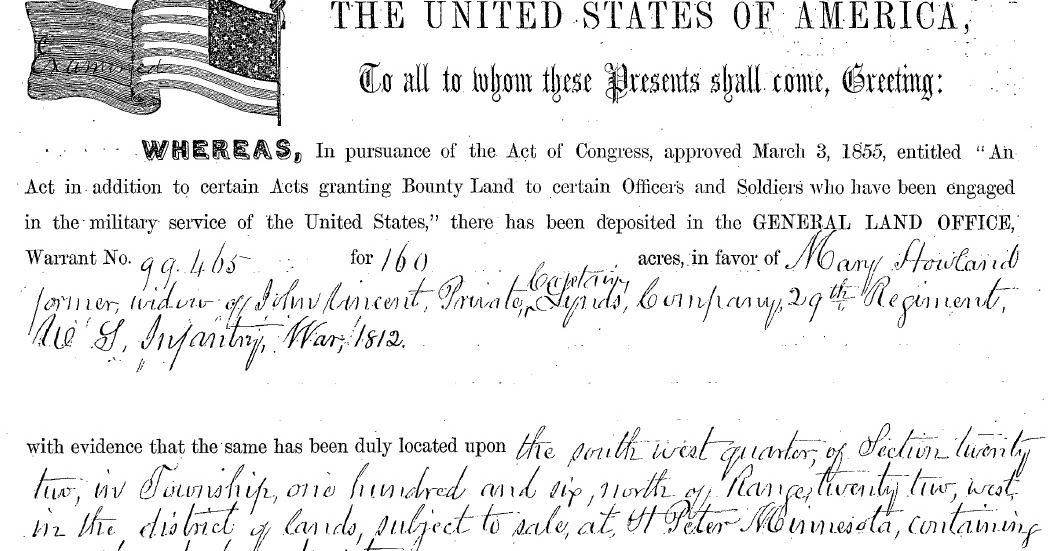 Examined
THE UNITED STATES OF AMERICA,
To all to whom these Presents shall come, Greeting:
WHEREAS, In pursuance of the Act of Congress, approved March 3, 1855, entitled "An
Act in addition to certain Acts granting Bounty Land to certain Officers and Soldiers who have been engaged
in the military service of the United States," there has been deposited in the GENERAL LAND OFFICE,
Warrant No. 99.465 for 160 acres, in favor of Mary Howland
former, widow of John Vincent, Private, Captain Lynds, Company, 29th Regiment,
U S, Infantry, War, 1812.
with evidence that the same has been duly located upon the south west quarter, of Section twenty
two, in Township, one hundred and six, north of Range, twenty two, west,
in the, district of lands, subject to sale, at, St Peter Minnesota, containing